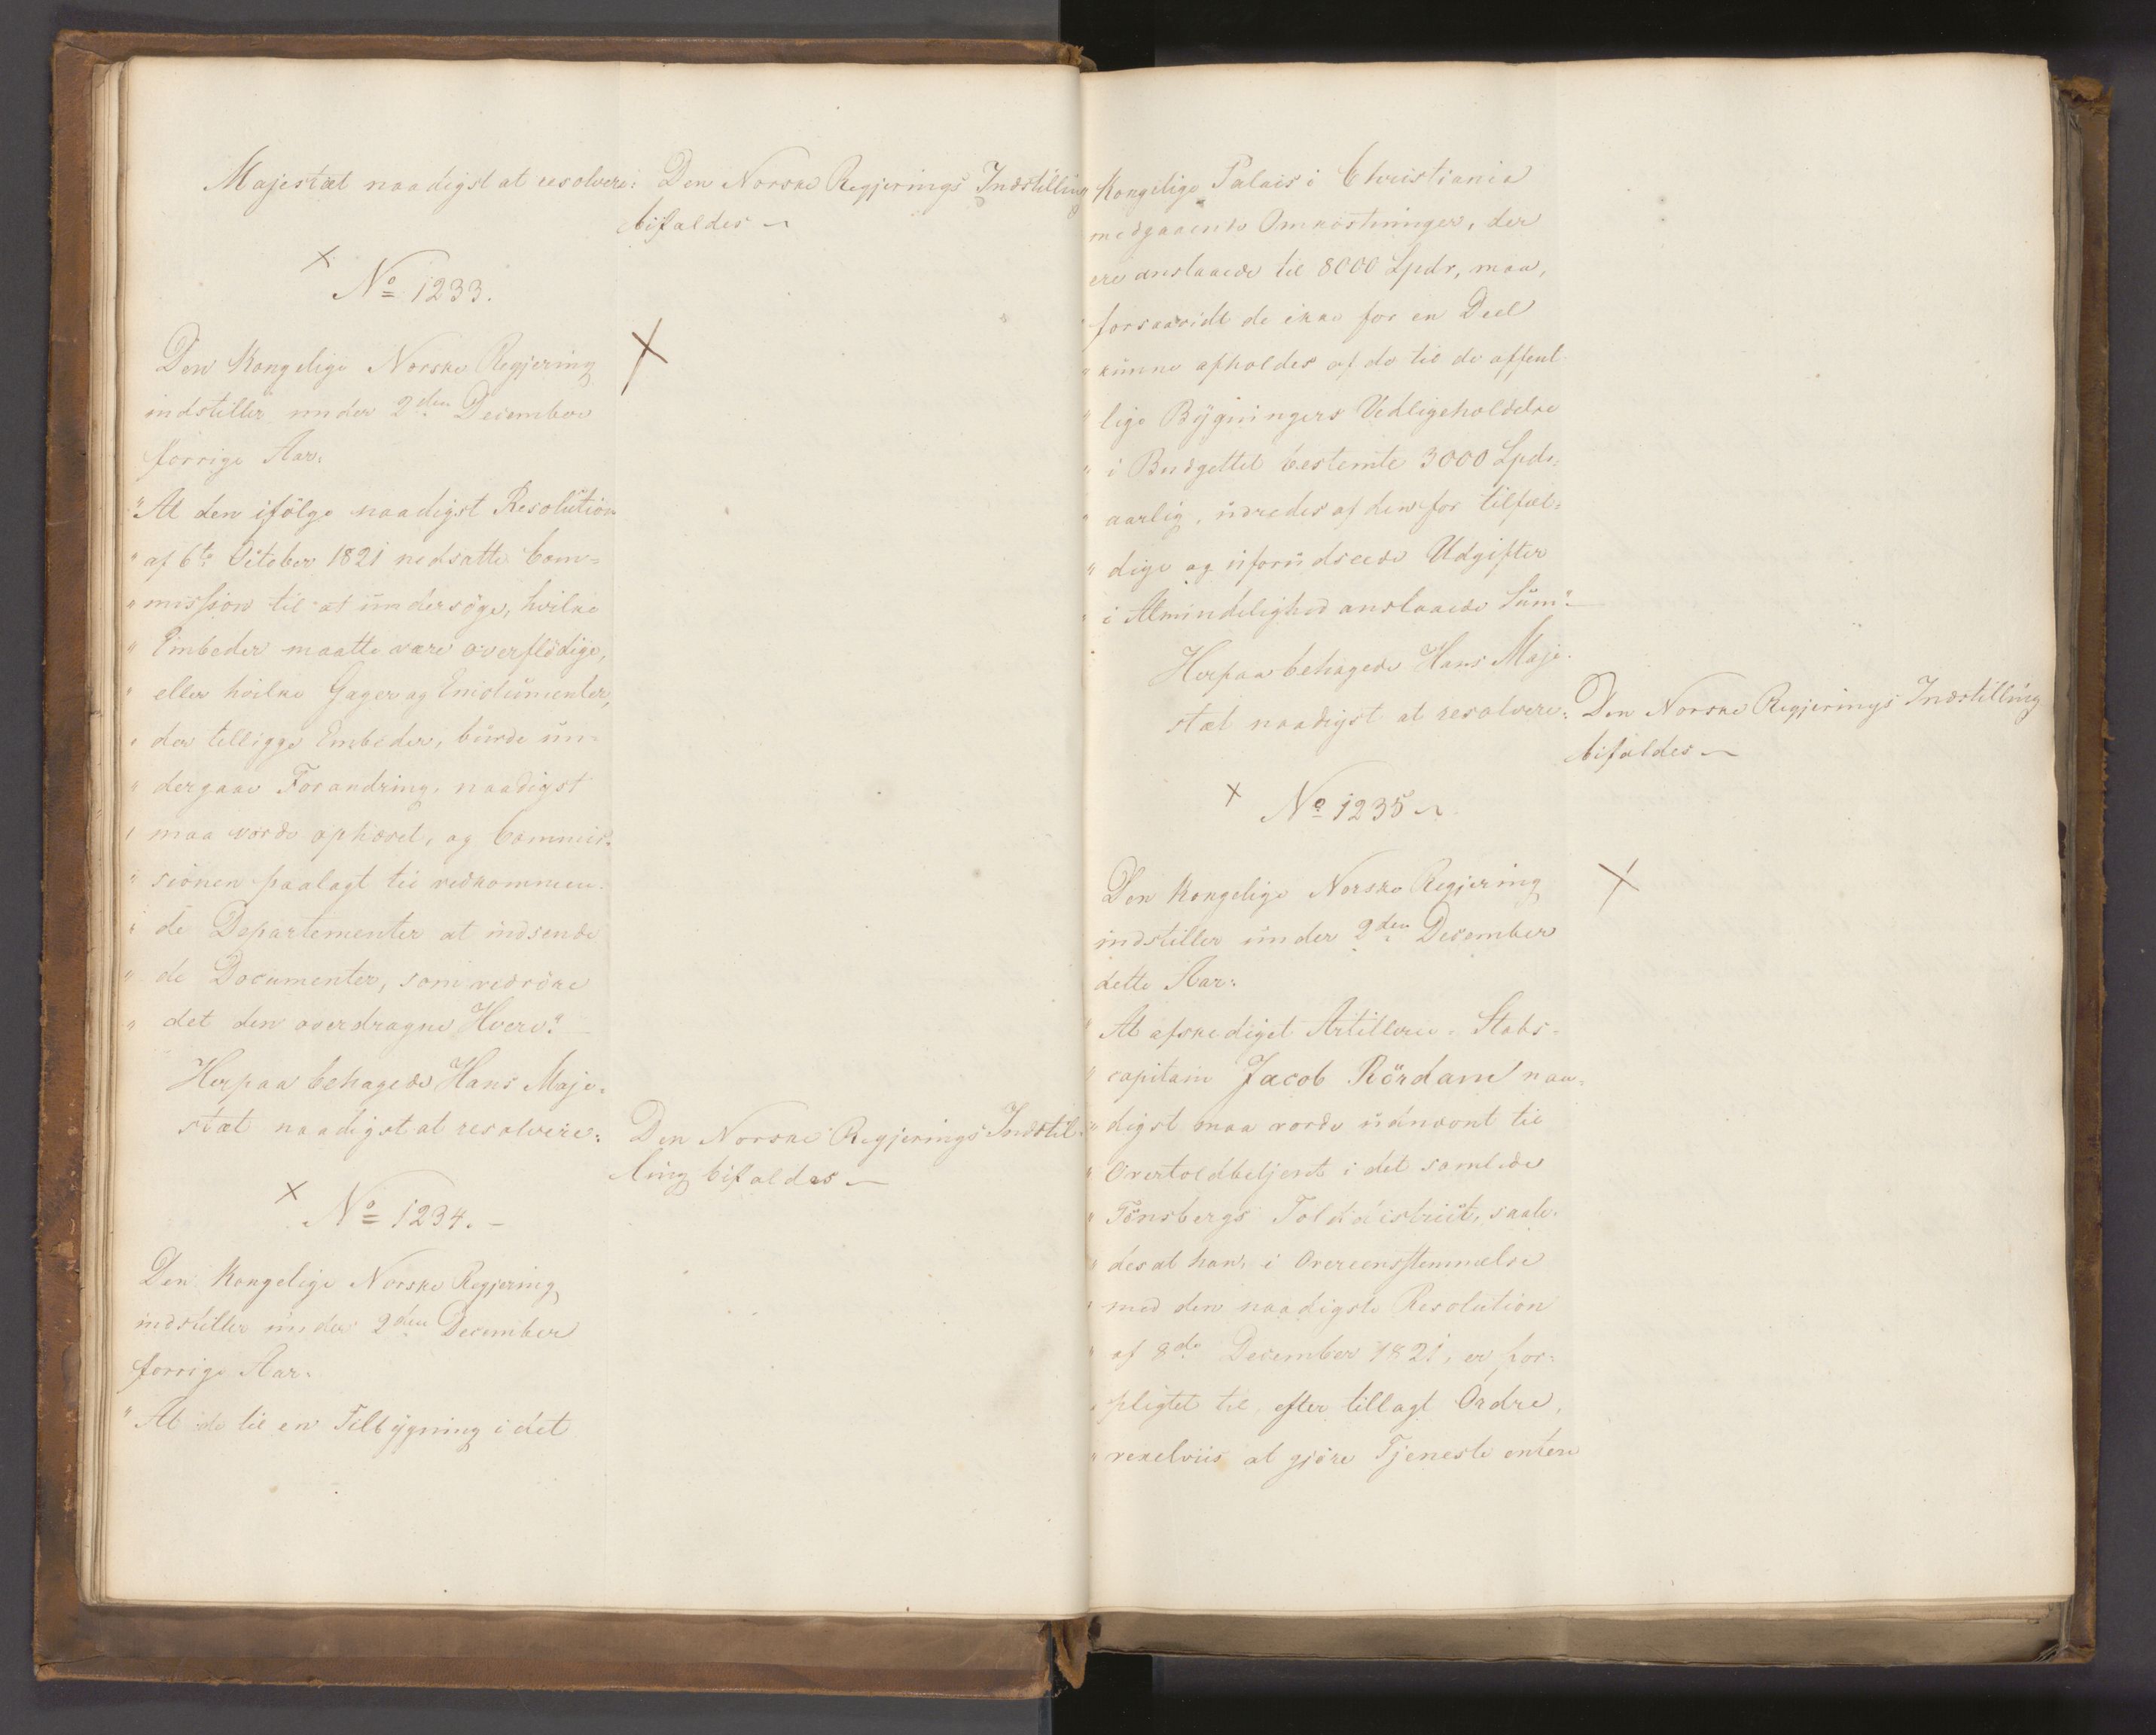 Majestæt naadigst at resolvere: Den Norske Regjerings Indstilling
bifaldes
No 1233.
Den Kongelige Norske Regjering
indstiller under 2den December
forrige Aar:
"At den ifölge naadigst Resolution
" af 6te October 1821 nedsatte Com=
" mission til at undersöge, hvilke
" Embeder maatte være overflödige,
" eller hvilke Gager og Emolumenter,
" der tilligge Embeder, burde un=
" dergaae Forandring, naadigst
" maa vorde ophævet, og Commis=
" sionen paalagt til vedkommen=
" de Departementer at indsende
" de Documenter, som vedröre
" det den overdragne Hverv."
Herpaa behagede Hans Maje=
stæt naadigst at resolvere: Den Norske Regjerings Indstil=
ling bifaldes
No 1234.
Den Kongelige Norske Regjering
indstiller under 2den December
forrige Aar:
"At de til en Tilbygning i det
Kongelige Palais i Christiania
medgaaende Omkostninger, der
ere anslaaede til 8000 Spdr, maa,
forsaavidt de ikke for en Deel
" kunne afholdes af de til de offent
" lige Bygningers Vedligeholdelse
" i Budgettet bestemte 3000 Spdr
" aarlig, udredes af den for tilfæl=
" dige og uforudseede Udgifter
" i Almindelighed anslaaede Sum"
Herpaa behagede Hans Maje=
stæt naadigst at resolvere: Den Norske Regjerings Indstilling
bifaldes
No 1235
Den Kongelige Norske Regjering
indstiller under 2den December
dette Aar:
" At afskediget Artillerie=Stabs=
" capitain Jacob Rördam naa=
" digst maa vorde udnævnt til
" Overtoldbetjent i det samlede
" Tönsbergs Tolddistrict, saale=
" des at han, i Overeensstemmelse
" med den naadigste Resolution
" af 8de December 1821, er for=
" pligtet til efter tillagt Ordre,
" vexelviis at gjöre Tjeneste enten